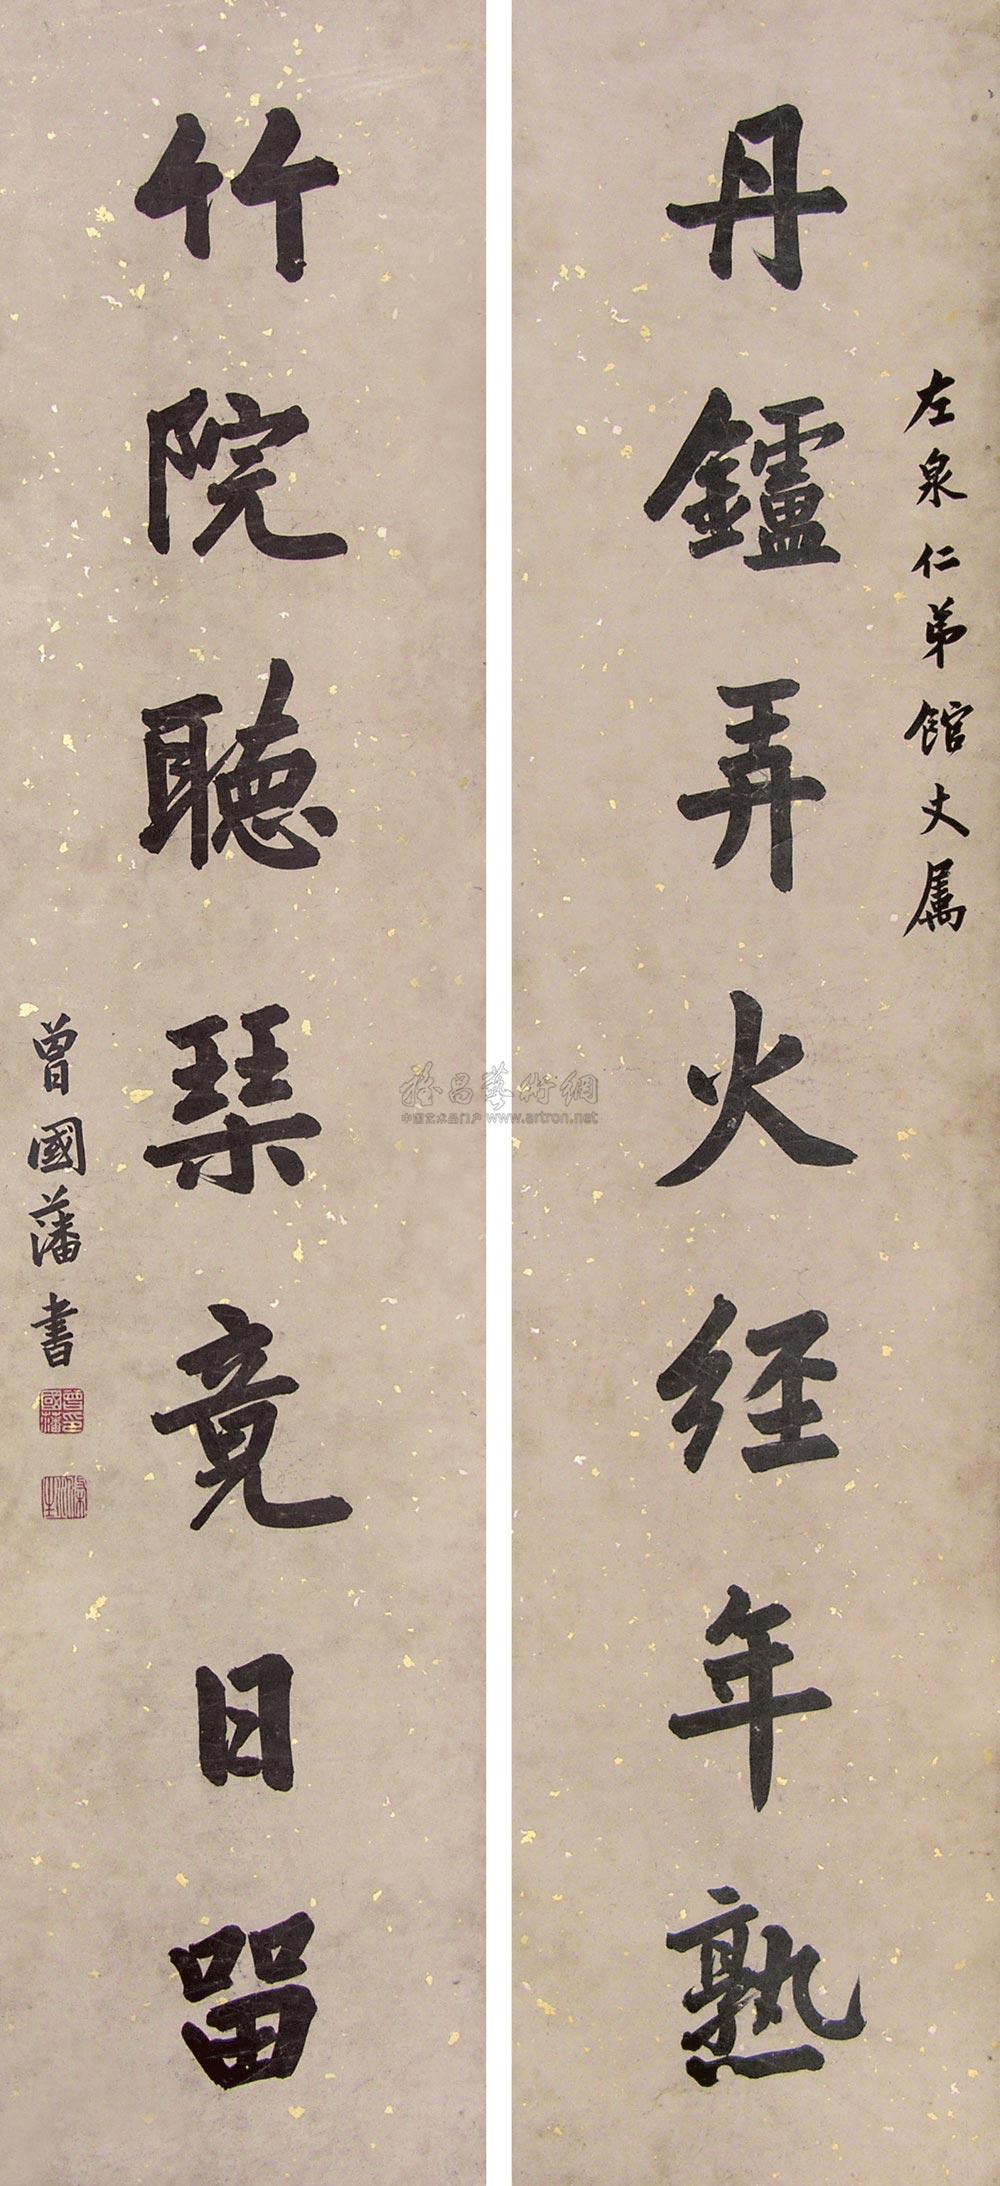 左泉仁弟館丈属
丹鑪弄火经年熟
竹院聽琹竟日留
曾國藩書
曾國藩印
雅昌藝術網
中国艺术品门户 www.artron.net